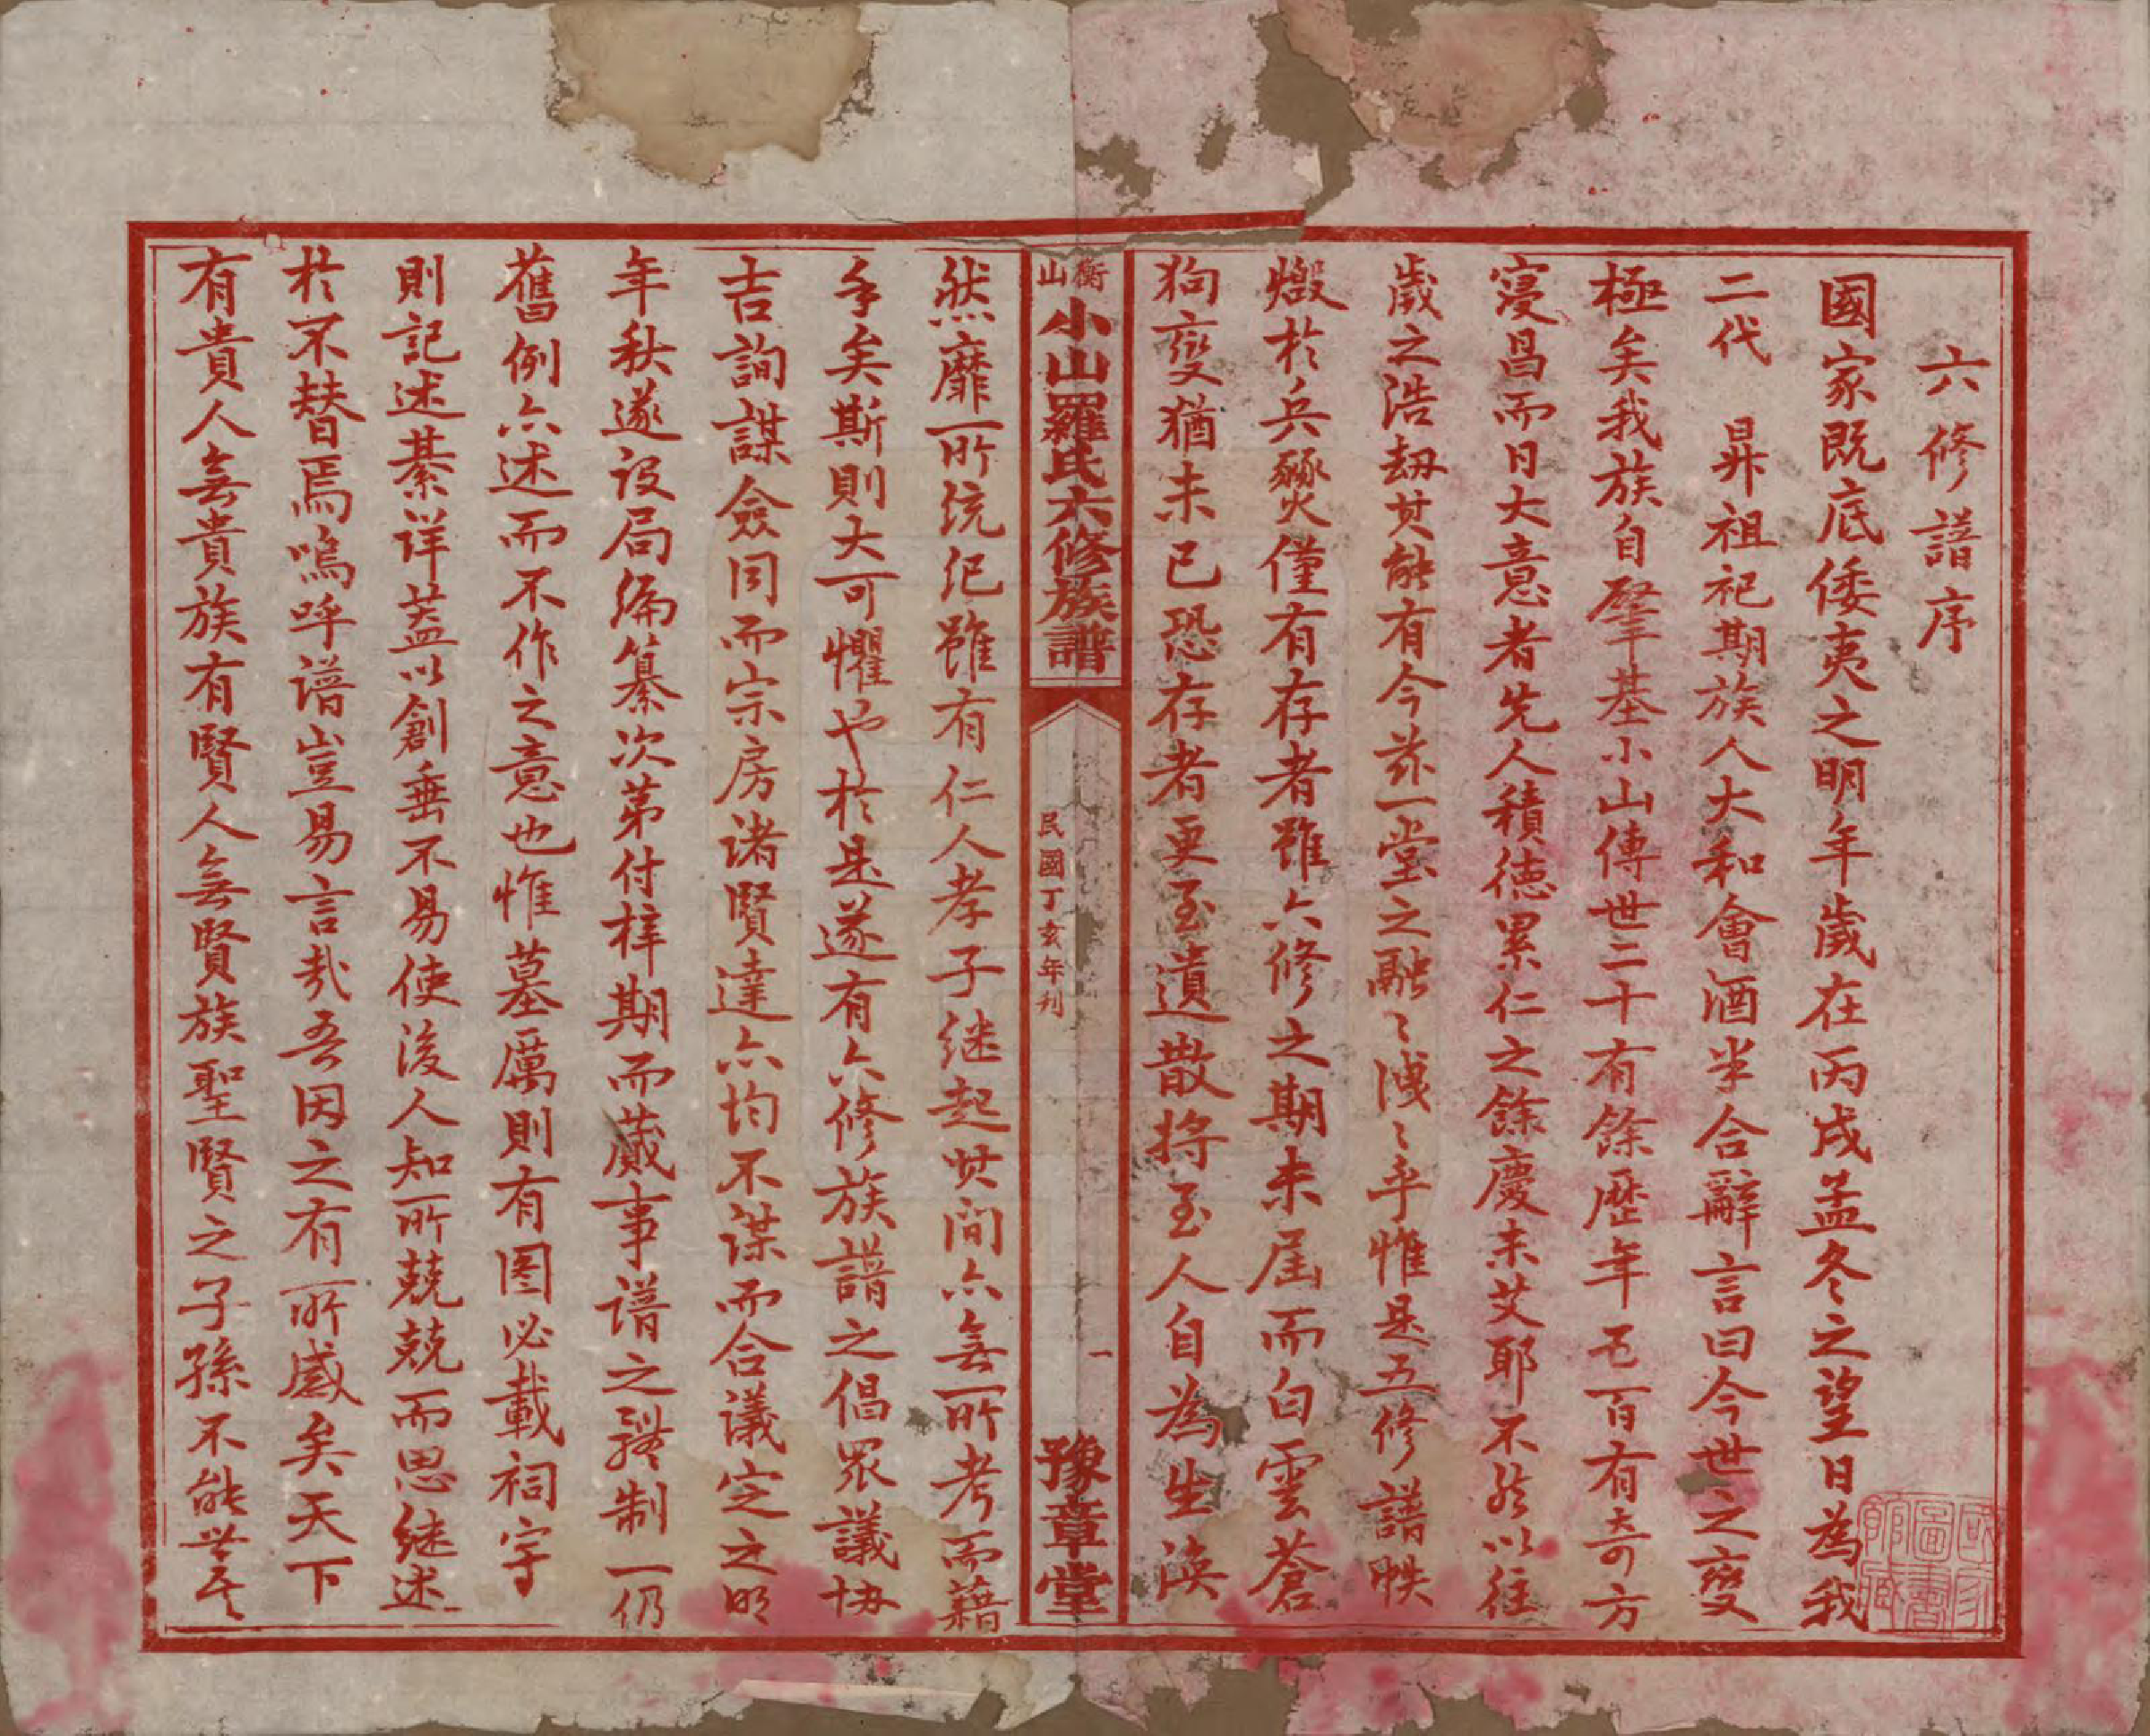 六修譜序
國家既底倭夷之明年歲在丙戌孟冬之望日為我
二代 昇祖祀期族人大和會酒半合辭言曰今世之變
極矣我族自肇基小山傳世二十有餘歷年五百有奇方
寖昌而日大意者先人積德累仁之餘慶未艾耶不然以往
歲之浩劫其能有今茲一堂之融〻洩〻乎惟是五修譜帙
燬於兵燹僅有存者雖六修之期未屆而白雲蒼
狗變猶未已恐存者更至遺散將至人自為生渙
衡山小山羅氏六修族譜
民國丁亥年刊
一
豫章堂
然靡所統紀雖有仁人孝子继起其间亦無所考而藉
手矣斯則大可懼也於是遂有六修族譜之倡眾議協
吉詢謀僉同而宗房诸賢達亦均不谋而合議定之明
年秋遂设局编纂次第付梓期而蕆事谱之體制一仍
舊例亦述而不作之意也惟墓厲則有图必載祠宇
則記述綦详蓋以創垂不易使後人知所兢兢而思继述
於不替焉嗚呼谱豈易言哉吾因之有所感矣天下
有貴人無貴族有賢人無賢族聖賢之子孫不能世其
國家圖書館藏